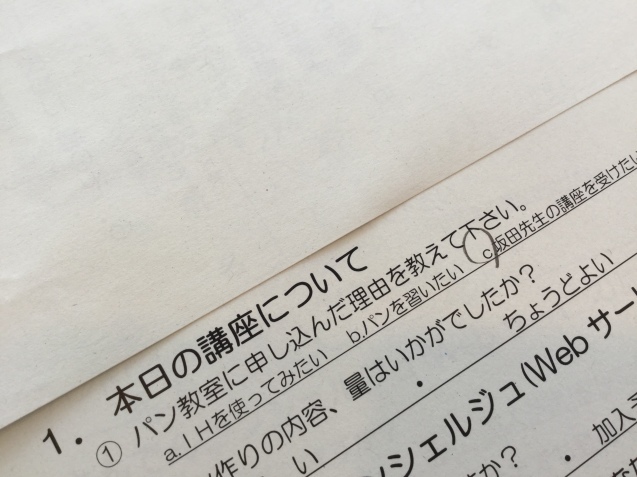 1. 本日の講座について
① パン教室に申し込んだ理由を教えて下さい。
a.IHを使ってみたい b.パンを習いたい c.坂田先生の講座を受けたい
作りの内容、量はいかがでしたか?
い ・ ちょうどよい
ンシェルジュ(Webサー
か? ・ 加入